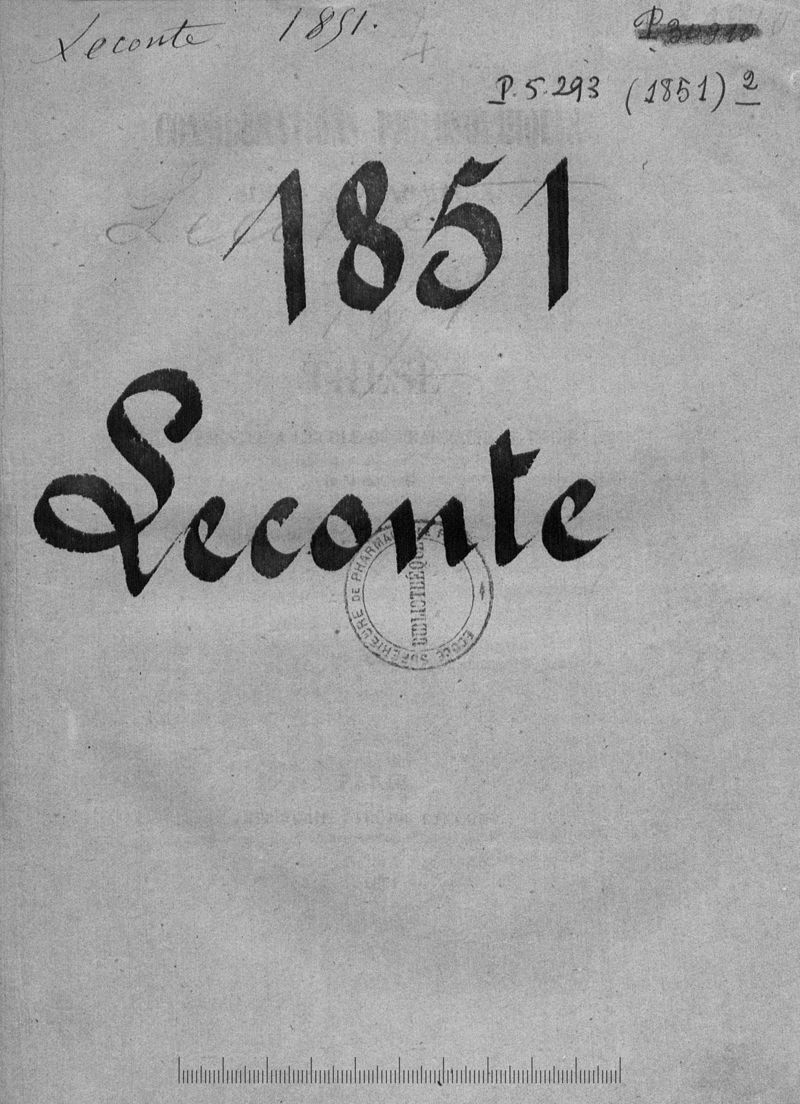 Leconte 1851.
P. 30910
P. 5. 293 (1851) 2
1851
Leconte
ÉCOLE SUPÉRIEURE DE PHARMACIE
BIBLIOTHÈQUE